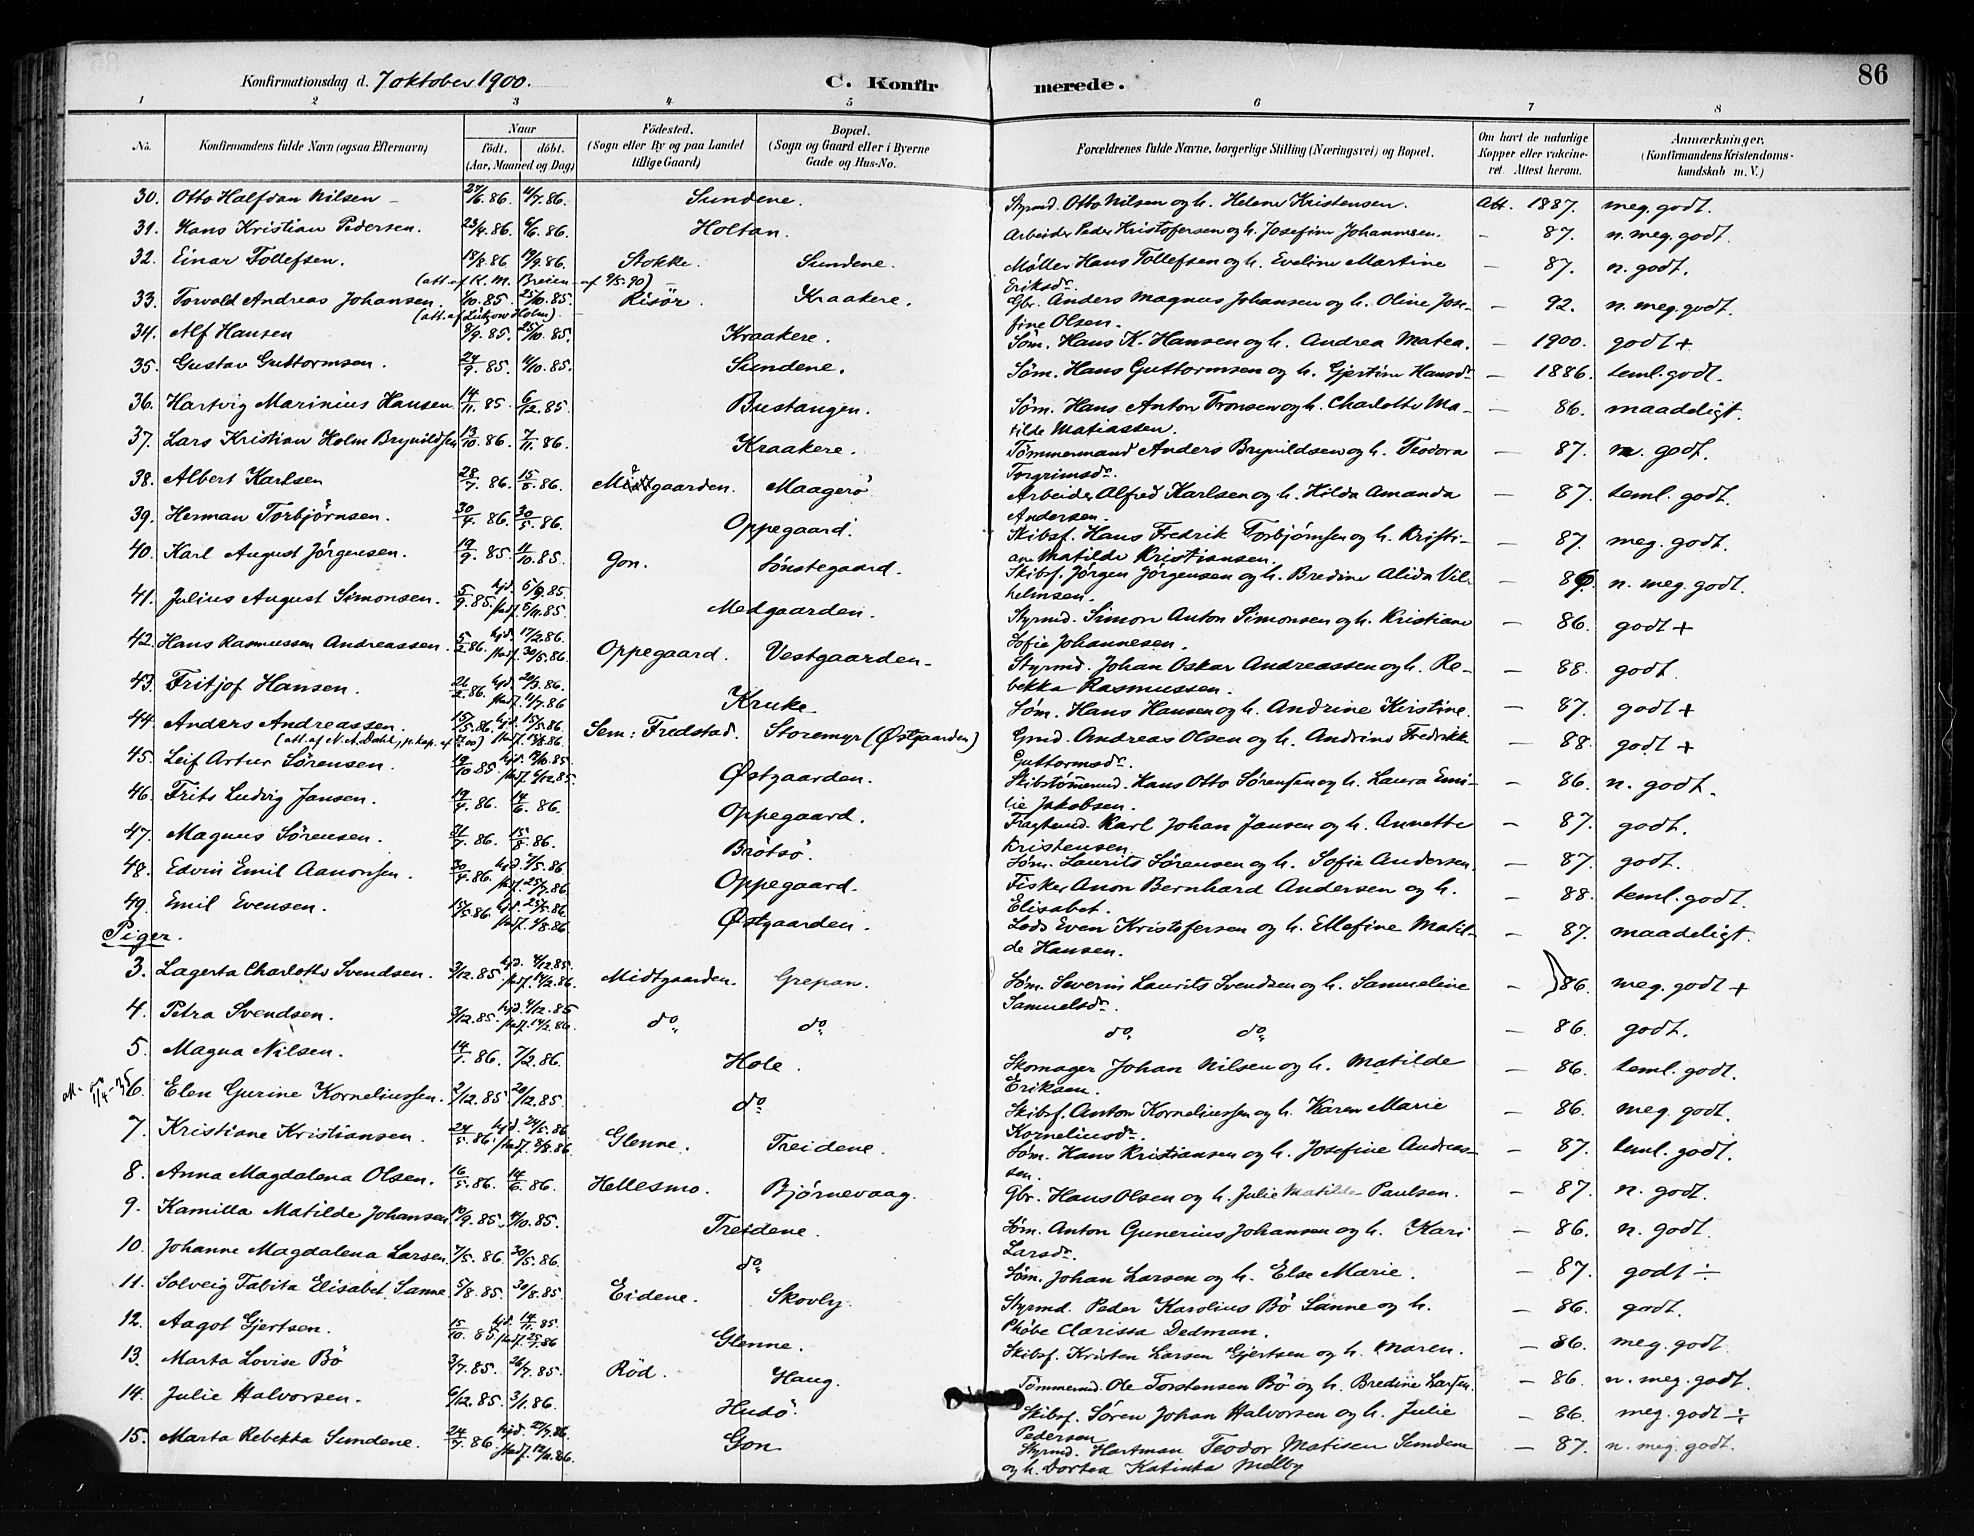 86
Konfirmationsdag d. 7 oktober 1900. C. Konfirmerede.
1 2 3 4 5 6 7 8
No. Konfirmandens fulde Navn (ogsaa Efternavn) Naar födt. döbt. (Aar, Maaned og Dag) Födested. (Sogn eller By og paa Landet tillige Gaard) Bopæl. (Sogn og Gaard eller i Byerne Gade og Hus-No. Forældrenes fulde Navne, borgerlige Stilling (Næringsvei) og Bopæl. Om havt de naturlige Kopper eller vaccineret. Attest herom. Anmærkninger. (Konfirmandens Kristendomskundskab m. V.)
30. Otto Halfdan Nilsen 27/6.86 11/7.86. Sundene. Styrmd. Otto Nilsen og h. Helene Kristensen. Att. 1887. meg. godt.
31. Hans Kristian Pedersen. 23/4.86. 6/6.86. Holtan. Arbeider Peder Kristofersen og h. Josefine Johannesen. - 87. n. meg. godt.
32. Einar Tollefsen. 18/8.86 19/9.86. Stokke. Sundene. Møller Hans Tollefsen og h. Eveline Martine Eriksdr. - 87. n. godt.
(att. af K. M. Breien af 9/5.90)
33. Torvald Andreas Johansen. 4/10.85. 25/10.85. Risör. Kraakere. Gbr. Anders Magnus Johansen og h. Oline Josefine Olsen. - 92. n. meg. godt.
(att. af Lützow Holm)
34. Alf Hansen 8/9.85. 25/10.85. Kraakere. Söm. Hans K. Hansen og h. Andrea Matea. - 1900. godt +
35. Gustav Guttormsen. 24/9.85. 4/10.85. Sundene. Söm. Hans Guttormsen og h. Gjertine Hansdr. - 1886. teml. godt.
36. Hartvig Marinius Hansen 14/11.85 6/12.85 Bustangen. Söm. Hans Anton Fronsen og h. Charlotte Matilde Matiassen. - 86. maadeligt
37. Lars Kristian Holm Brynildsen 13/10.86. 7/11.86. Kraakere. Tømmermand Anders Brynildsen og h. Teodora Torgrimsdr. - 87. n. godt.
38. Albert Karlsen 28/7.86. 15/8.86. Midtgaarden. Maagerö. Arbeider Alfred Karlsen og h. Hilda Amanda Andersen. - 87. teml. godt.
39. Herman Torbjörnsen. 30/4.86. 30/5.86. Oppegaard. Skibsf. Hans Fredrik Torbjørnsen og h. Kristiane Matilde Kristiansen. - 87. meg. godt.
40. Karl August Jörgensen. 19/9.85 11/10.85. Gon. Sönstegaard. Skibsf. Jörgen Jörgensen og h. Bredine Alida Vilhelmsen. - 86. n. meg. godt.
41. Julius August Simonsen. 5/9.85. hjd. 5/9.85. stadf. 5/11.85. Medgaarden. Styrmd. Simon Anton Simonsen og h. Kristiane Sofie Johannesen. - 86. godt +
42. Hans Rasmussen Andreassen. 5/2.86. hjd. 17/2.86. stadf. 30/5.86. Oppegaard. Vestgaarden. Styrmd. Johan Oskar Andreassen og h. Rebekka Rasmussen. - 88. godt.
43. Fritjof Hansen. 21/2.86. hjd. 21/3.86. stadf. 11/7.86 Kruke Söm. Hans Hansen og h. Andrine Kirstine. - 87. godt +
44. Anders Andreassen. 15/5.86. hjd. 15/5.86. stadf. 15/8.86. Sem: Fredstad. Storemyr (Østgaarden) Gmd. Andreas Olsen og h. Andrine Fredrikke Guttormsdr. - 88. godt +
(att. af N. A. Dahl, p. kap. af
45. Leif Artur Sörensen. 19/10.85. Østgaarden. Skibstömmd. Hans Otto Sörensen og h. Laura Emilie Jakobsen. - 86. n. godt.
46. Frits Ludvig Jansen. 19/4.86. 14/6.86. Oppegaard. Fragtemd. Karl Johan Jansen og h. Annette Kristensen. - 87. godt.
47. Magnus Sörensen. 21/7.86. 15/8.86. Brötsö. Söm. Laurits Sörensen og h. Sofie Andersen. - 87. godt.
48. Edvin Emil Aanonsen. 30/4.86. hjd. 2/5.86 stadf. 25/7.86. Oppegaard. Fisker Anon Bernhard Andersen og h. Elisabet. - 88. teml. godt.
49. Emil Evensen. 15/5.86 hjd. 25/5.86 stadf. 1/8.86 Østgaarden. Lods Even Kristofersen og h. Ellefine Matilde Hansen. - 87. maadeligt.
Piger.
3. Lagerta Charlotte Svendsen. 3/12.85. hjd. 4/12.85. stadf. 14/2.86. Midtgaarden. Grepan. Söm. Severin Laurits Svendsen og h. Samueline Samuelsdr. - 86. meg. godt +
4. Petra Svendsen. 3/12.85. hjd. 4/12.85 stadf. 14/2.86. do do do do - 86. godt.
5. Magna Nilsen. 14/1.86. 7/2.86. Hole. Skomager Johan Nilsen og h. Matilde Eriksen. - 86. teml. godt.
att. 1/4-35 6. Elen Gurine Korneliussen. 2/12.85 20/12.85. do Skibsf. Anton Korneliussen og h. Karen Marie Korneliusdr. - 86. meg. godt.
7. Kristiane Kristiansen. 24/5.86. hjd. 24/5.86 stadf. 8/8.86. Glenne. Treidene. Söm. Hans Kristiansen og h. Josefine Andreassen. - 87. teml. godt.
8. Anna Magdalena Olsen. 16/5.86. 14/6.86. Hellesmo. Bjørnevaag. Gbr. Hans Olsen og h. Julie Matilde Paulsen. - 87. n. godt.
9. Kamilla Matilde Johansen 10/9.85. 4/10.85. Treidene. Söm. Anton Gunerius Johansen og h. Kari Larsdr. - 86. n. godt.
10. Johanne Magdalena Larsen 7/5.86 30/5.86. do Söm. Johan Larsen og h. Else Marie. - 87. godt ÷
11. Solveig Tabita Elisabet Sanne. 5/8.85. 30/8.85. Eidene. Skovly. Styrmd. Peder Karolius Bö Sanne og h. Phöbe Clarissa Dedman. - 86. godt.
12. Aagot Gjertsen. 15/10.85 hjd. 14/11.85. stadf. Glenne. Skibsf. Kristen Larsen Gjertsen og h. Maren. - 86. meg. godt.
13. Marta Lovise Bö 3/7.85. 26/7.85. Röd. Haug. Tömmermd. Ole Torstensen Bö og h. Bredine Larsen. - 86. n. meg. godt.
14. Julie Halvorsen. 6/12.85 3/1.86. Hudö. Skibsf. Sören Johan Halvorsen og h. Julie Pedersen - 86. meg. godt ÷
15. Marta Rebekka Sundene. 24/7.86. hjd. 27/7.86. stadf. Gon Styrmd. Hartman Teodor Matisen Sundene og h. Dortea Katinka Melby - 87. n. meg. godt.